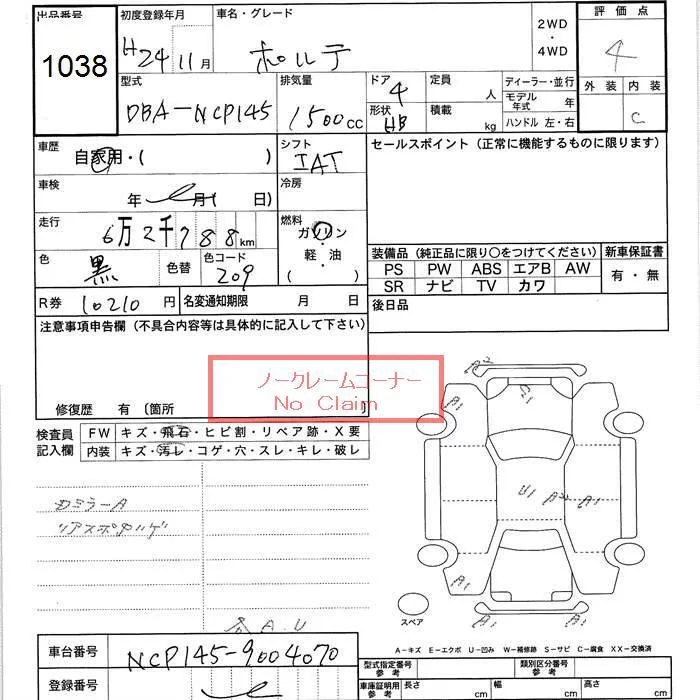 出品番号 初度登録年月 車名・グレード 2WD・4WD 評価点
1038 H24 11月 ポルテ 4
型式 排気量 ドア 4 定員 人 ディーラー・並行 外装 内装
DBA-NCP145 1500cc 形状 HB 積載 kg モデル年式 年 C
ハンドル 左・右
車歴 自家用・( ) シフト IAT セールスポイント(正常に機能するものに限ります)
車検 年 月( 日) 冷房
走行 6万2千788km 燃料 ガソリン・軽油( )
装備品(純正品に限り○をつけてください) 新車保証書
PS PW ABS エアB AW 有・無
色 黒 色替 色コード 209 SR ナビ TV カワ
R券 10210円 名変通知期限 月 日 後日品
注意事項申告欄(不具合内容等は具体的に記入して下さい)
ノークレームコーナー
No Claim
修復歴 有〔箇所 〕
検査員記入欄 FW キズ・飛石・ヒビ割・リペア跡・X要
内装 キズ・汚レ・コゲ・穴・スレ・キレ・破レ
ミラーA
A2
A1
U1
A1
U1 A2 A1
A1
A1
スペア
A.U
A-キズ E-エクボ U-凹み W-補修跡 S-サビ C-腐食 XX-交換済
車台番号 NCP145-9004070
型式指定番号 参考 類別区分番号 参考
登録番号
車庫証明用 参考 長さ cm 幅 cm 高さ cm